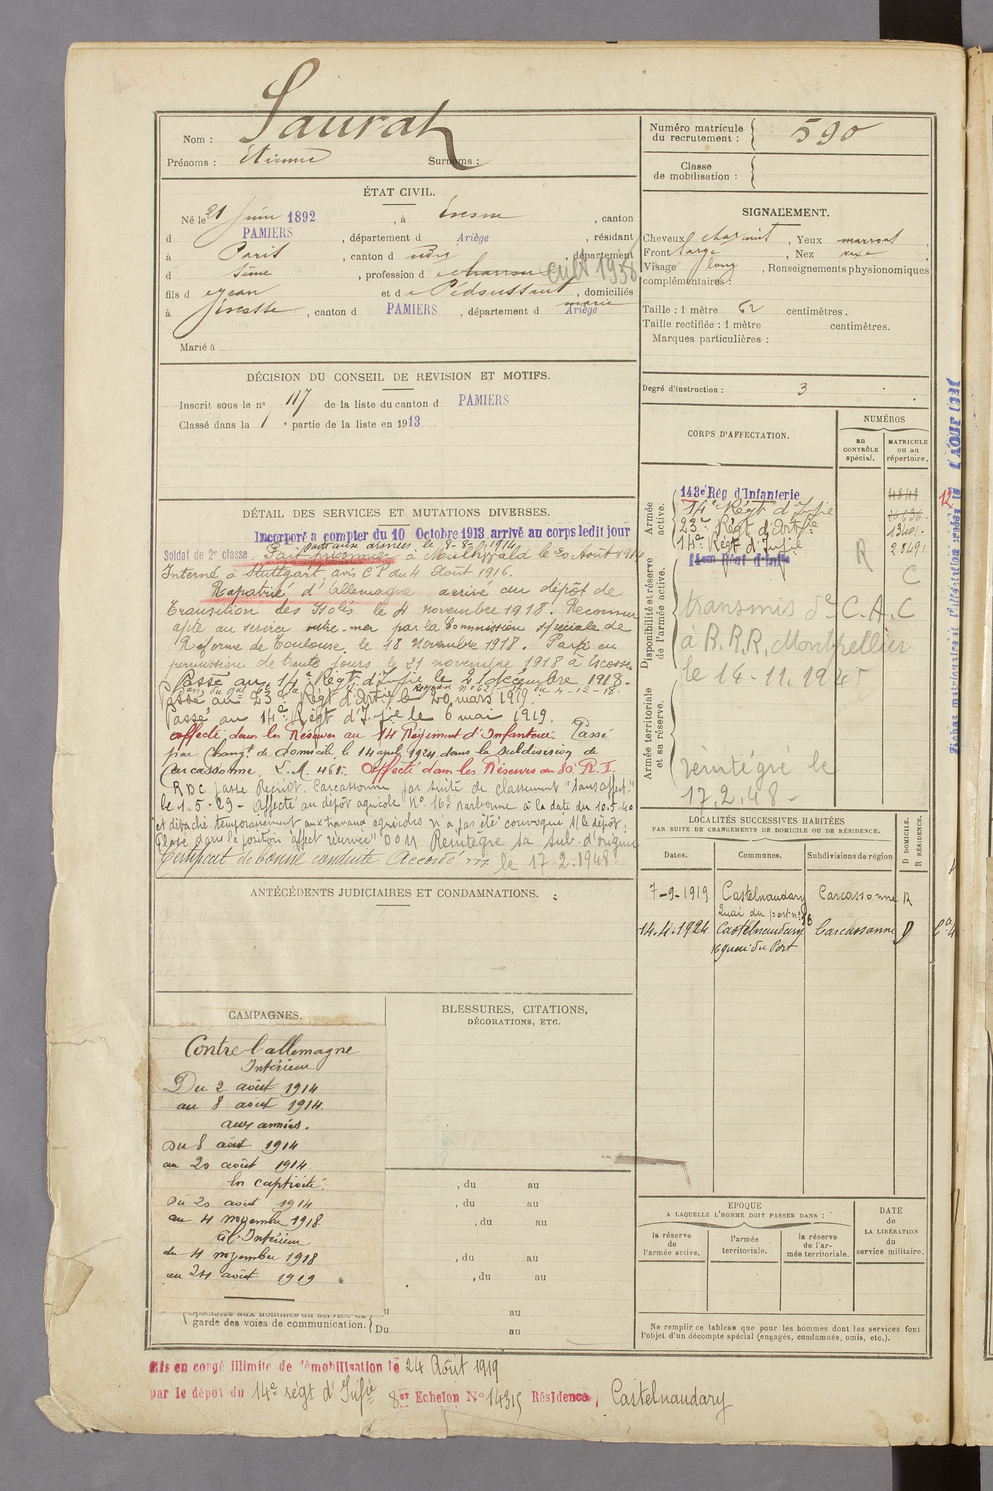 Nom : Saurat
Prénoms : Etienne Surnoms :
Numéro matricule du recrutement : 590
Classe de mobilisation :
ÉTAT CIVIL.
Né le 21 Juin 1892, à , canton
d PAMIERS, département d Ariège, résidant
à Paris, canton d udg, département
d Seine, profession d charron cult 1938
fils d e Jean et d e Pédoussaut marie, domiciliés
à , canton d PAMIERS, département d Ariège
Marié à
SIGNALEMENT.
Cheveux chatains, Yeux marrons,
Front large, Nez
Visage long, Renseignements physionomiques
complémentaires :
Taille : 1 mètre 62 centimètres.
Taille rectifiée : 1 mètre centimètres.
Marques particulières :
Degré d'instruction : 3
DÉCISION DU CONSEIL DE REVISION ET MOTIFS.
Inscrit sous le n° 117 de la liste du canton d PAMIERS
Classé dans la 1e partie de la liste en 1913
CORPS D'AFFECTATION.
NUMÉROS
au CONTRÔLE spécial.
MATRICULE ou au répertoire.
Armée active.
143e Rég. d'Infanterie
14e Régt d'Infie
23e Régt d'Artie
14e Régt d'Infie
13401
28491
Disponibilité et réserve de l'armée active.
R
C
transmis de C.A.C
à B.R.R. Montpellier
le 14-11.1945
Armée territoriale et sa réserve.
réintégré le
17.2.48-
DÉTAIL DES SERVICES ET MUTATIONS DIVERSES.
Incorporé a compter du 10 Octobre 1913 arrivé au corps ledit jour
Soldat de 2e classe. Parti aux armées le 8 1914
Fait prisonnier à le 20 Août 1914
Interné à Stuttgart, avis C.P. du 4 Août 1916.
Rapatrié d'Allemagne arrivé au dépôt de
transition des Isolés le 4 novembre 1918. Reconnu
apte au service outre-mer par la Commission spéciale de
Réforme de Toulouse le 18 Novembre 1918. Parti en
permission de trente jours le 21 novembre 1918 à Ecosse
Passé au 14e Régt d'Infie le 21 décembre 1918.
Passé au 23e Régt d'Artie le 20 mars 1919.
Passé au 14e Régt d'Infie le 6 mai 1919.
affecté dans les Réserves au 14 Régiment d'Infanterie. Passé
par Changt de domicile le 14 avril 1924 dans la subdivision de
Carcassonne. L.M. 461. Affecté dans les Réserves au 80 R.I.
RDC passe Recrut. Carcassonne par suite de classement "sans affect."
le 1.5.29 - Affecté au dépôt agricole No 168 Narbonne à la date du 10.5.40
et détaché temporairement aux travaux agricoles n'a pas été convoqué au dépôt.
Classé dans la position "affect réservée" Réintègre sa sub. d'origine
le 17-2-1948
Certificat de bonne conduite Accordé
LOCALITÉS SUCCESSIVES HABITÉES
PAR SUITE DE CHANGEMENTS DE DOMICILE OU DE RÉSIDENCE.
D DOMICILE. R RÉSIDENCE.
Dates. Communes. Subdivisions de région
7-9-1919 Castelnaudary Quai du port no 16 Carcassonne R
14.4.1924 Castelnaudary 16 quai du Port Carcassonne D
ANTÉCÉDENTS JUDICIAIRES ET CONDAMNATIONS.
CAMPAGNES.
Contre l'allemagne
Intérieur
Du 2 août 1914
au 8 août 1914
aux armées.
Du 8 août 1914
au 20 août 1914
En captivité.
Du 20 août 1914
au 4 novembre 1918
à l'Intérieur
du 4 novembre 1918
au 24 août 1919
BLESSURES, CITATIONS,
DÉCORATIONS, ETC.
, du au
, du au
, du au
, du au
, du au
Spéciales aux hommes du service de
garde des voies de communication.
u au
Du au
EPOQUE
A LAQUELLE L'HOMME DOIT PASSER DANS :
la réserve de l'armée active.
l'armée territoriale.
la réserve de l'armée territoriale.
DATE de LA LIBÉRATION du service militaire.
Ne remplir ce tableau que pour les hommes dont les services font
l'objet d'un décompte spécial (engagés, condamnés, omis, etc.).
Mis en congé illimité de démobilisation le 24 Août 1919
par le dépôt du 14e régt d'Infie 8er Echelon No 14315 Résidence, Castelnaudary